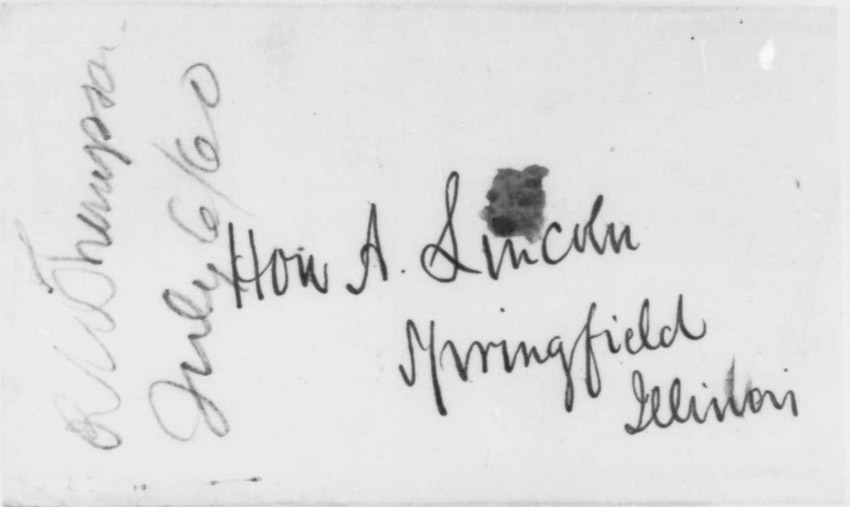 R W Thompson
July 6/60
Hon A. Lincoln
Springfield
Illinois